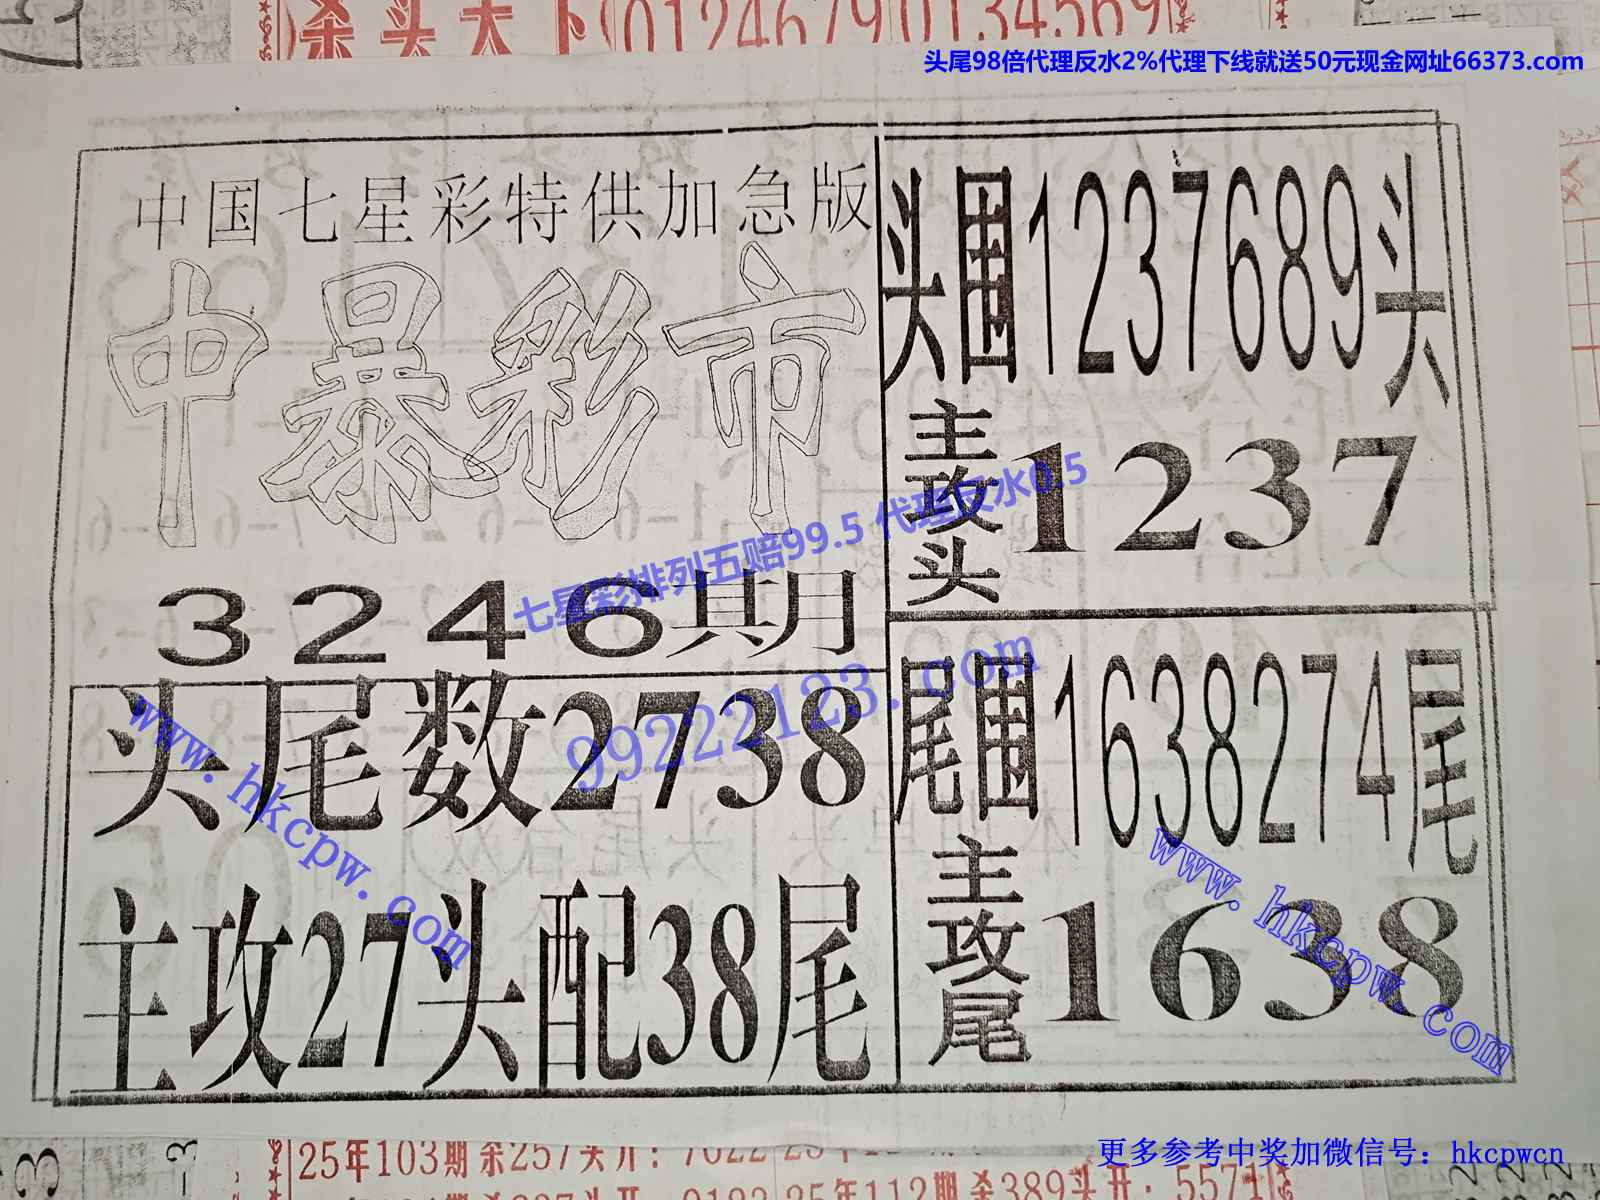 杀头天下 0124679 0134569
头尾98倍代理反水2%代理下线就送50元现金网址66373.com
中国七星彩特供加急版
中暴彩市
3246期
头尾数2738
主攻27头配38尾
头围1237689头
主攻头1237
尾围1638274尾
主攻尾1638
七星彩排列五赔99.5 代理反水0.5
99222123.com
www.hkcpw.com
www.hkcpw.com
25年103期杀257头开：7022
25年112期杀389头开：5571
更多参考中奖加微信号：hkcpwcn